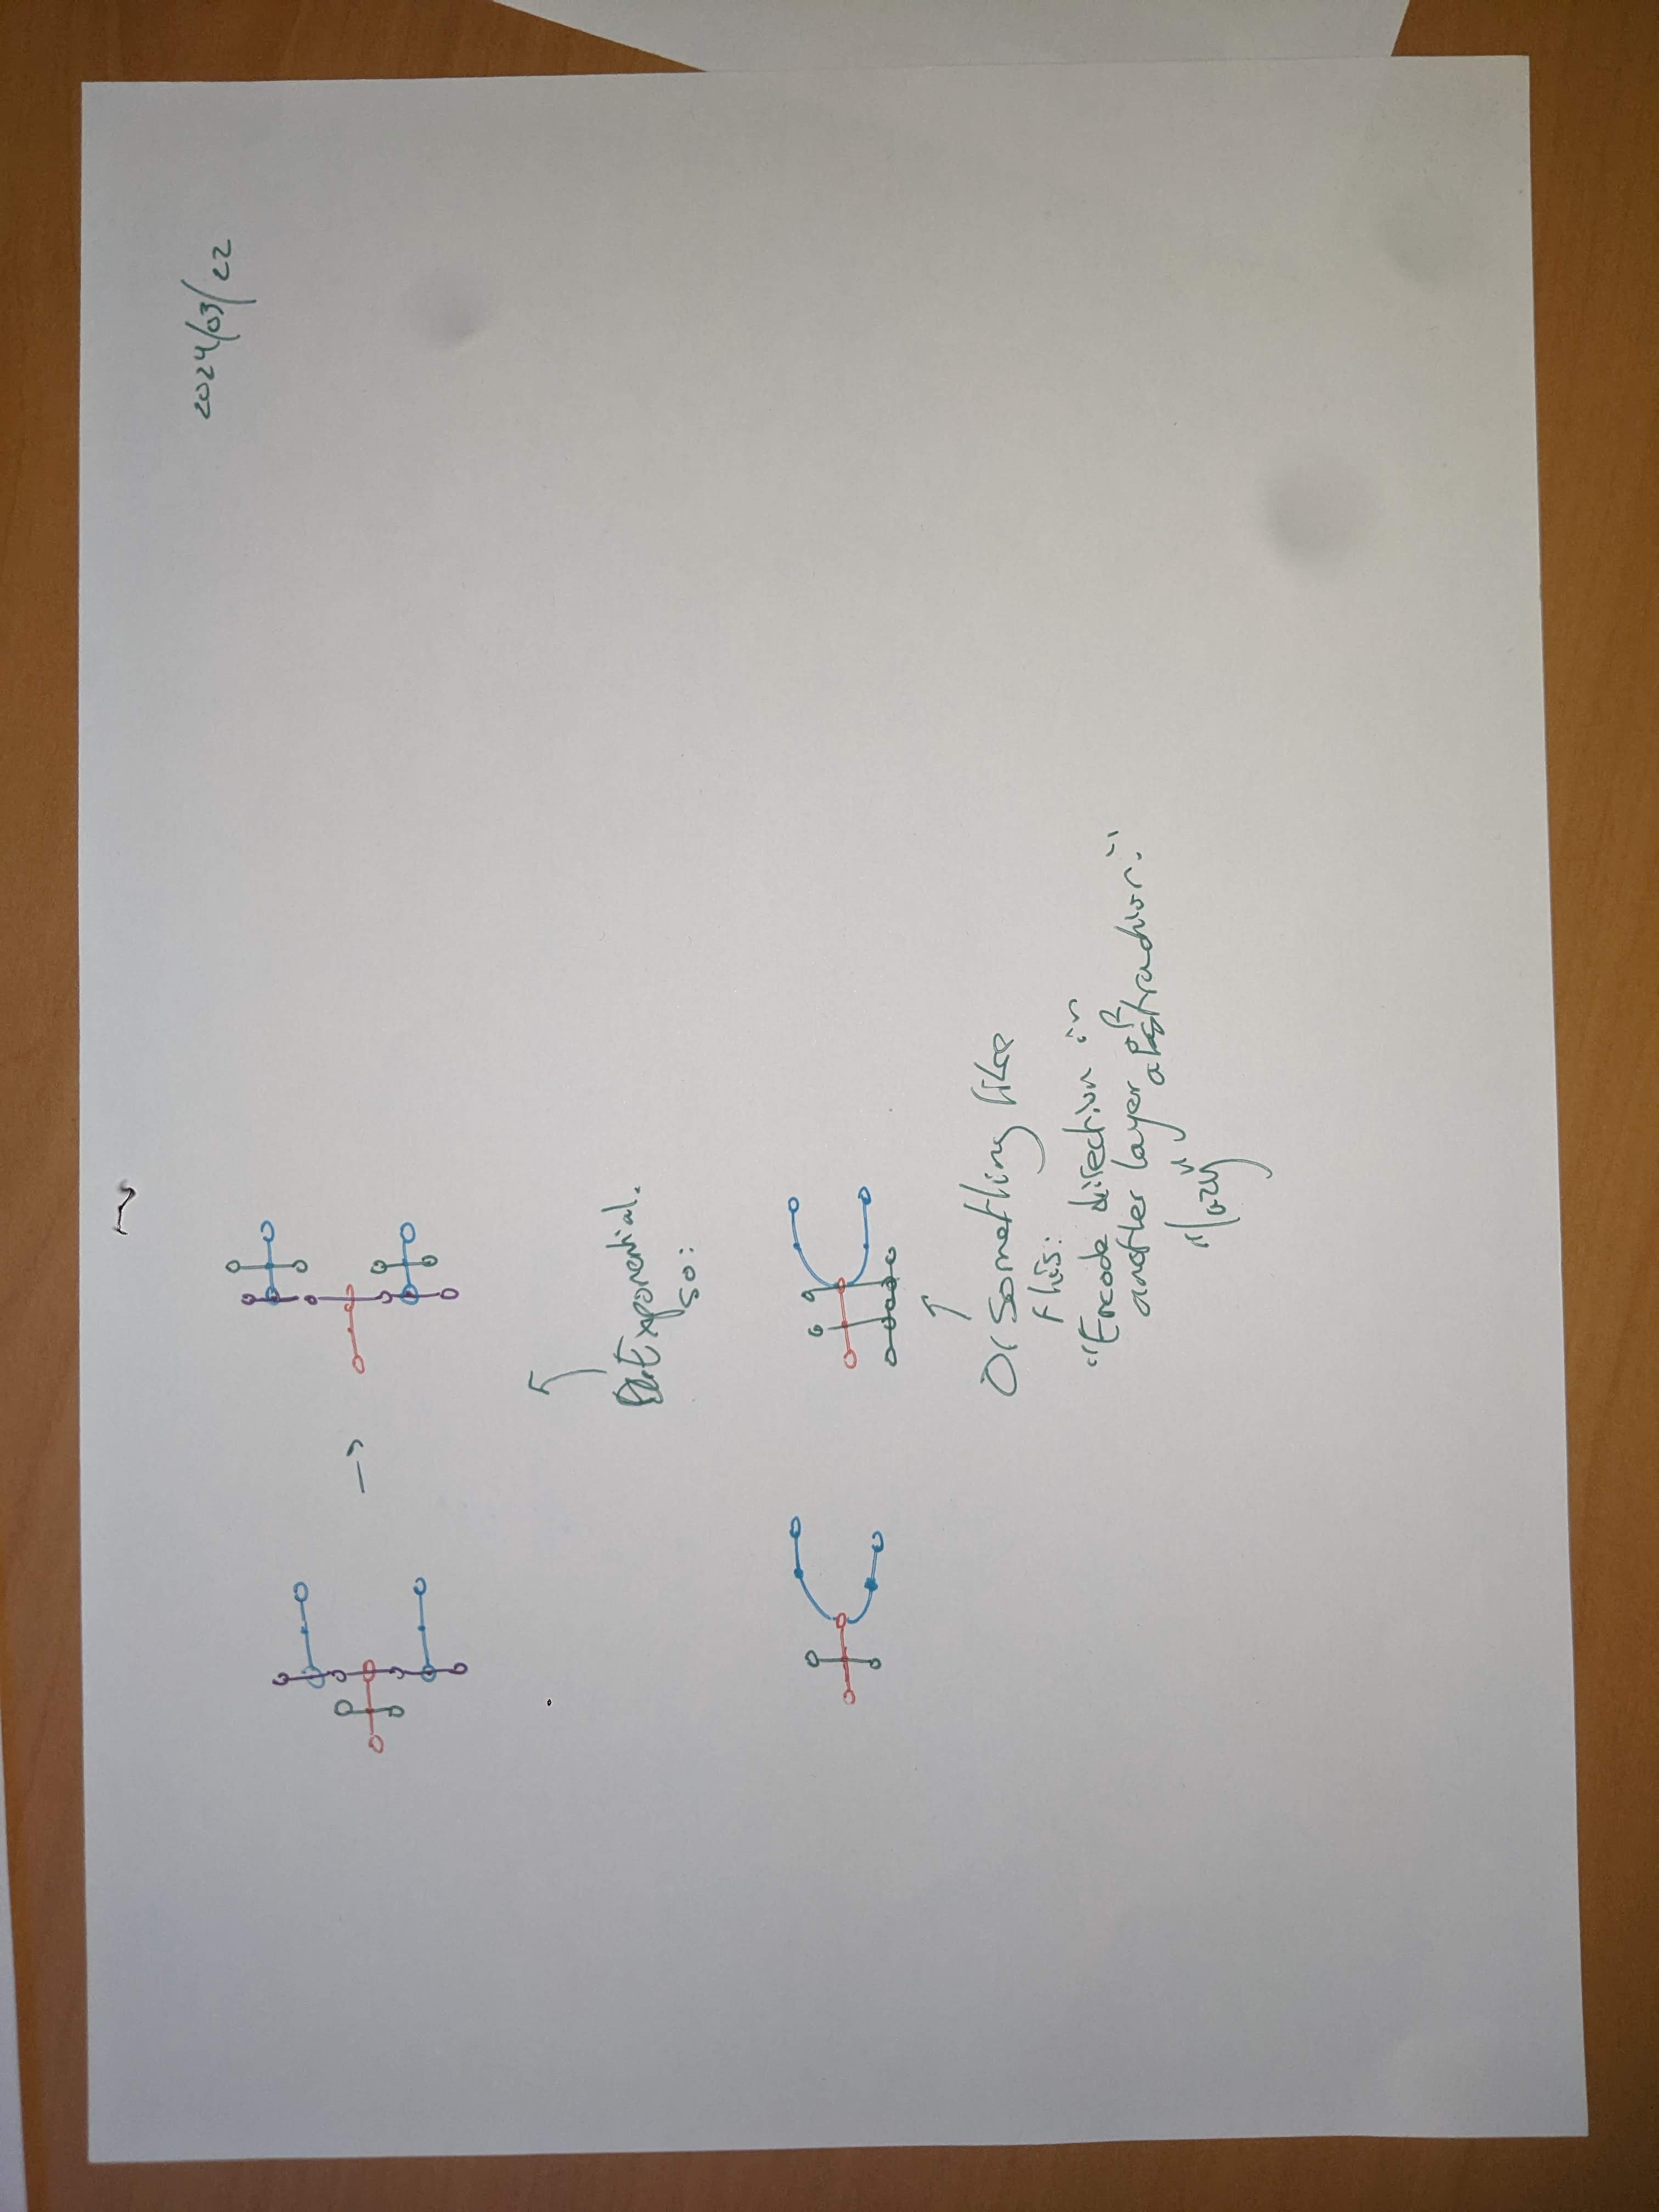 2
2024/03/22
→
↑
Exponential.
so:
↑
Or something like
this:
"Encode direction in
another layer of
abstraction."
"lazy"